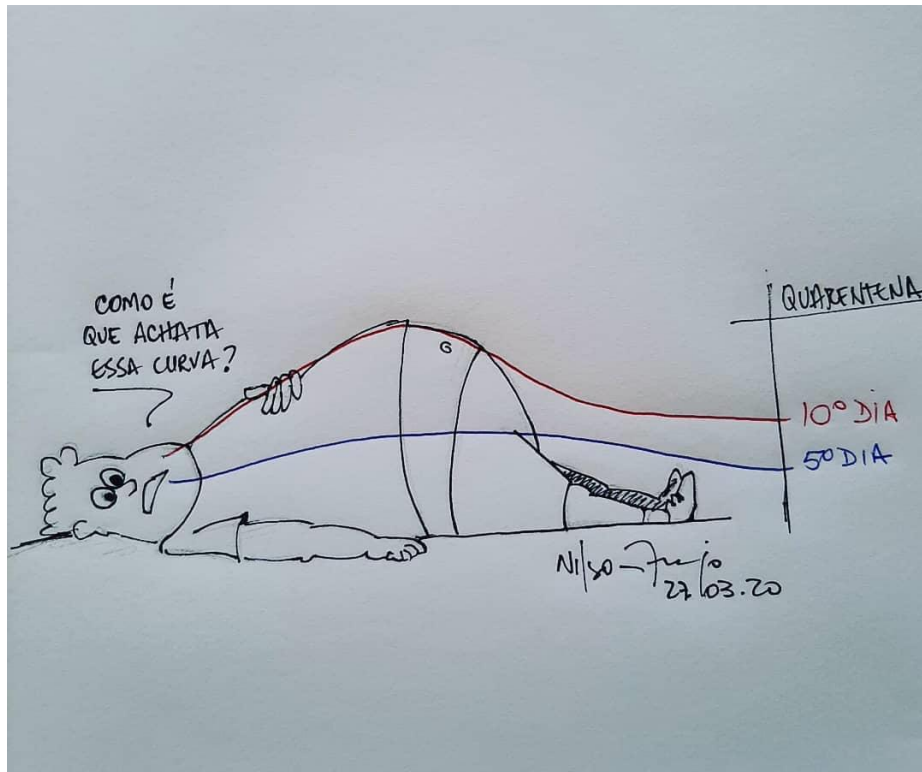 COMO É
QUE ACHATA
ESSA CURVA?
QUARENTENA
10º DIA
5º DIA
27/03.20